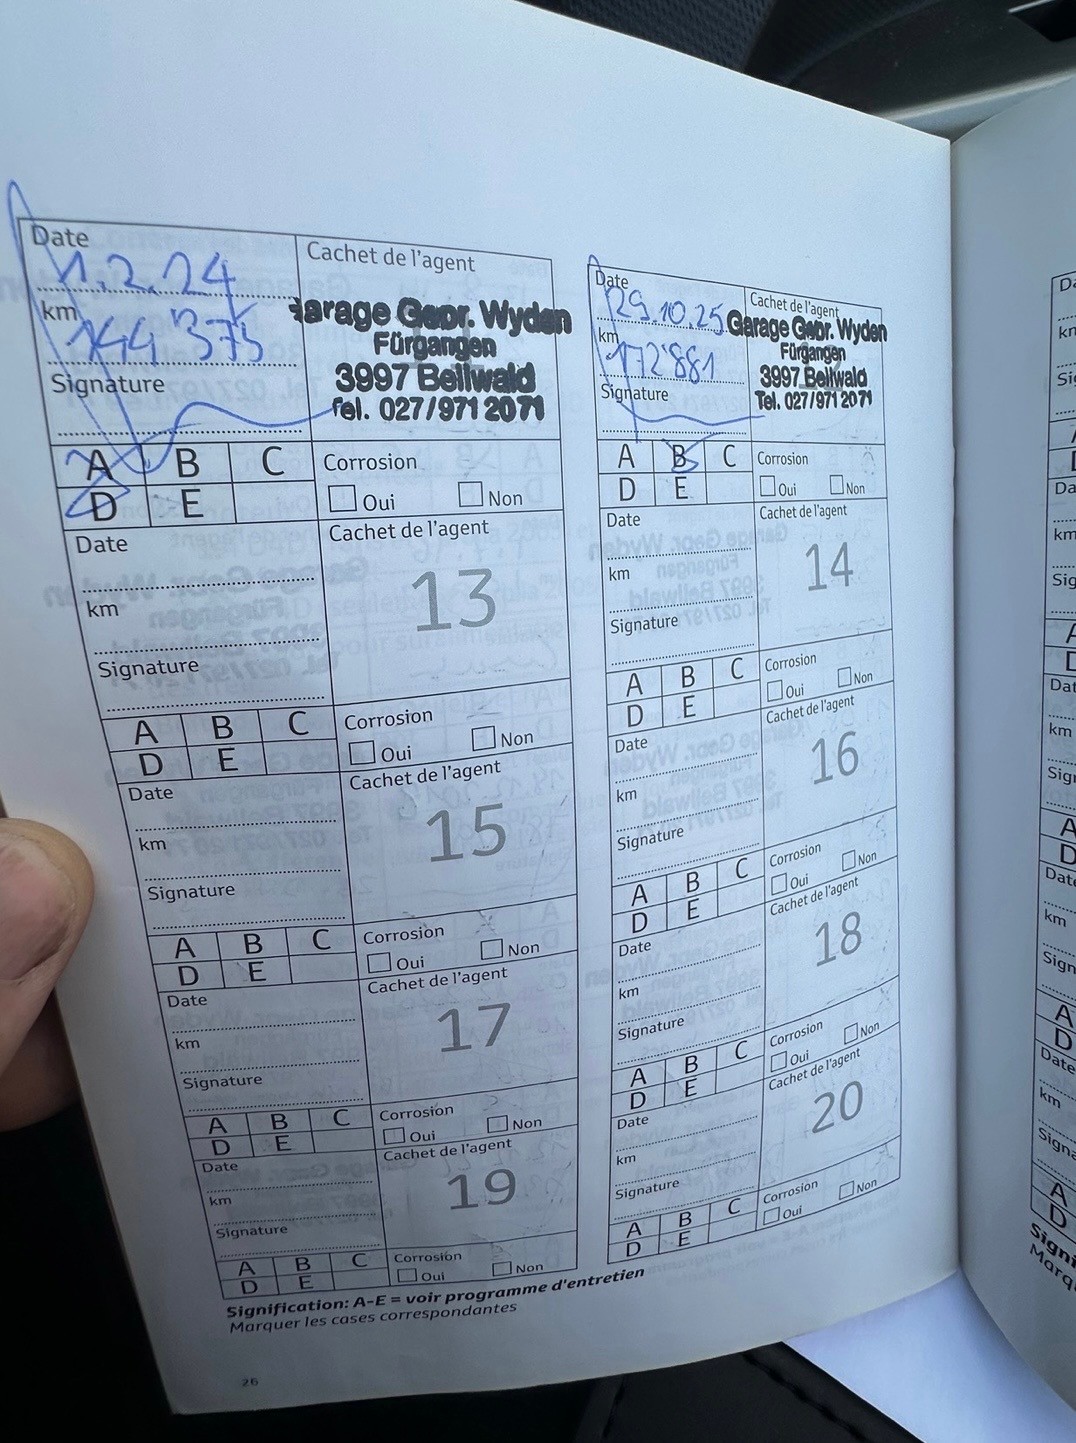 Date
1.2.24
km
144'375
Signature
Cachet de l'agent
Garage Gebr. Wyden
Fürgangen
3997 Bellwald
Tel. 027/971 20 71
A B C
D E
Corrosion
Oui Non
Date
29.10.25
km
172'881
Signature
Cachet de l'agent
Garage Gebr. Wyden
Fürgangen
3997 Bellwald
Tel. 027/971 20 71
A B C
D E
Corrosion
Oui Non
Date
km
Signature
Cachet de l'agent
13
A B C
D E
Corrosion
Oui Non
Date
km
Signature
Cachet de l'agent
14
A B C
D E
Corrosion
Oui Non
Date
km
Signature
Cachet de l'agent
15
A B C
D E
Corrosion
Oui Non
Date
km
Signature
Cachet de l'agent
16
A B C
D E
Corrosion
Oui Non
Date
km
Signature
Cachet de l'agent
17
A B C
D E
Corrosion
Oui Non
Date
km
Signature
Cachet de l'agent
18
A B C
D E
Corrosion
Oui Non
Date
km
Signature
Cachet de l'agent
19
A B C
D E
Corrosion
Oui Non
Date
km
Signature
Cachet de l'agent
20
A B C
D E
Corrosion
Oui Non
Signification: A-E = voir programme d'entretien
Marquer les cases correspondantes
26